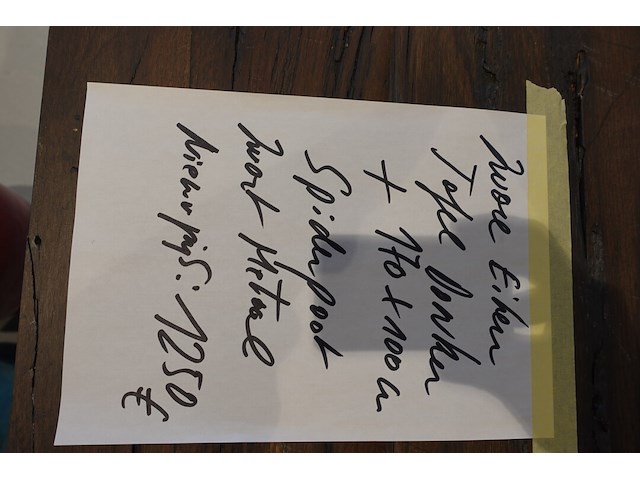 Zware Eiken
Tafel Donker
+ 170 x 100 cm
Spiderpoot
Zwart Metaal
Nieuw prijs: 1250
€